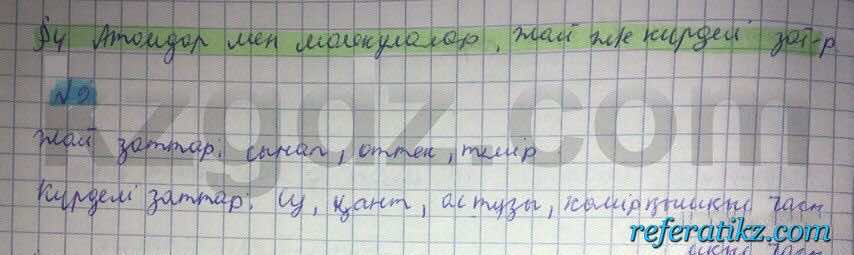 §4 Атомдар мен молекулалар, жай ж/е күрделі зат-р
№2
Жай заттар: сынап, оттек, темір
Күрделі заттар: су, қант, ас тұзы, көмірқышқыл газы
kzgdz.com
referatikz.com